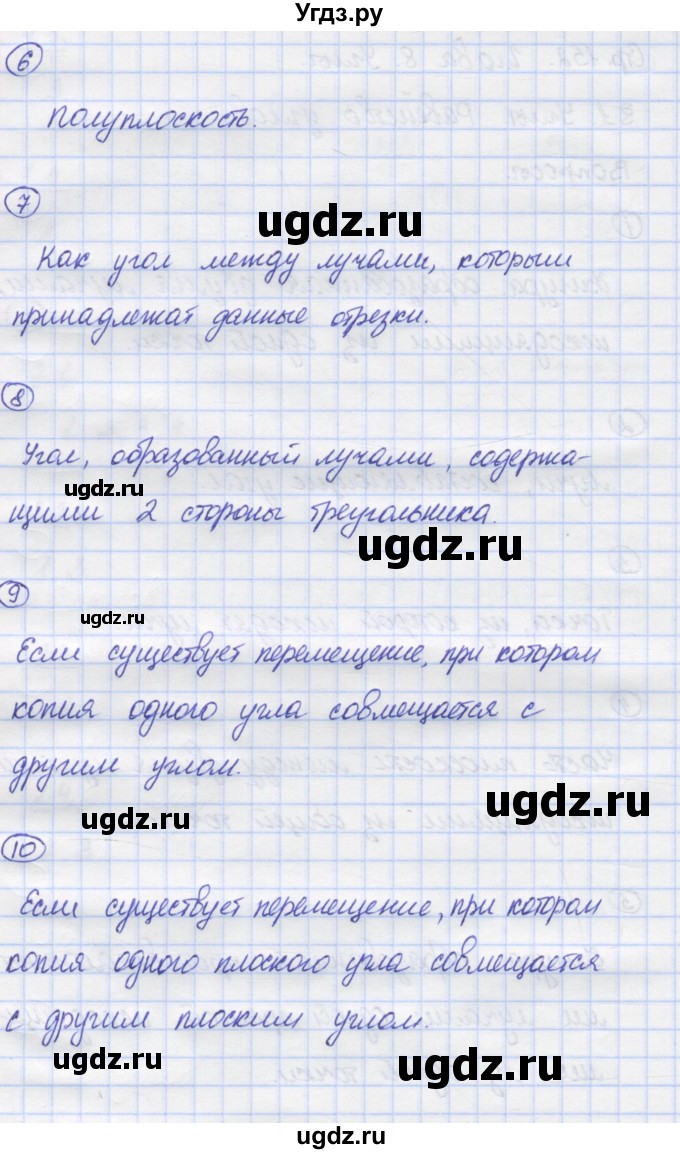 Угдз.ру
6
Полуплоскость.
7
ugdz.ru
Как угол между лучами, которым
принадлежат данные отрезки.
8
Угол, образованный лучами, содержа-
ugdz.ru
щими 2 стороны треугольника.
ugdz.ru
9
ugdz.ru
Если существует перемещение, при котором
копия одного угла совмещается с
другим углом.
ugdz.ru
ugdz.ru
10
Если существует перемещение, при котором
копия одного плоского угла совмещается
с другим плоским углом.
ugdz.ru
ugdz.ru
ugdz.ru